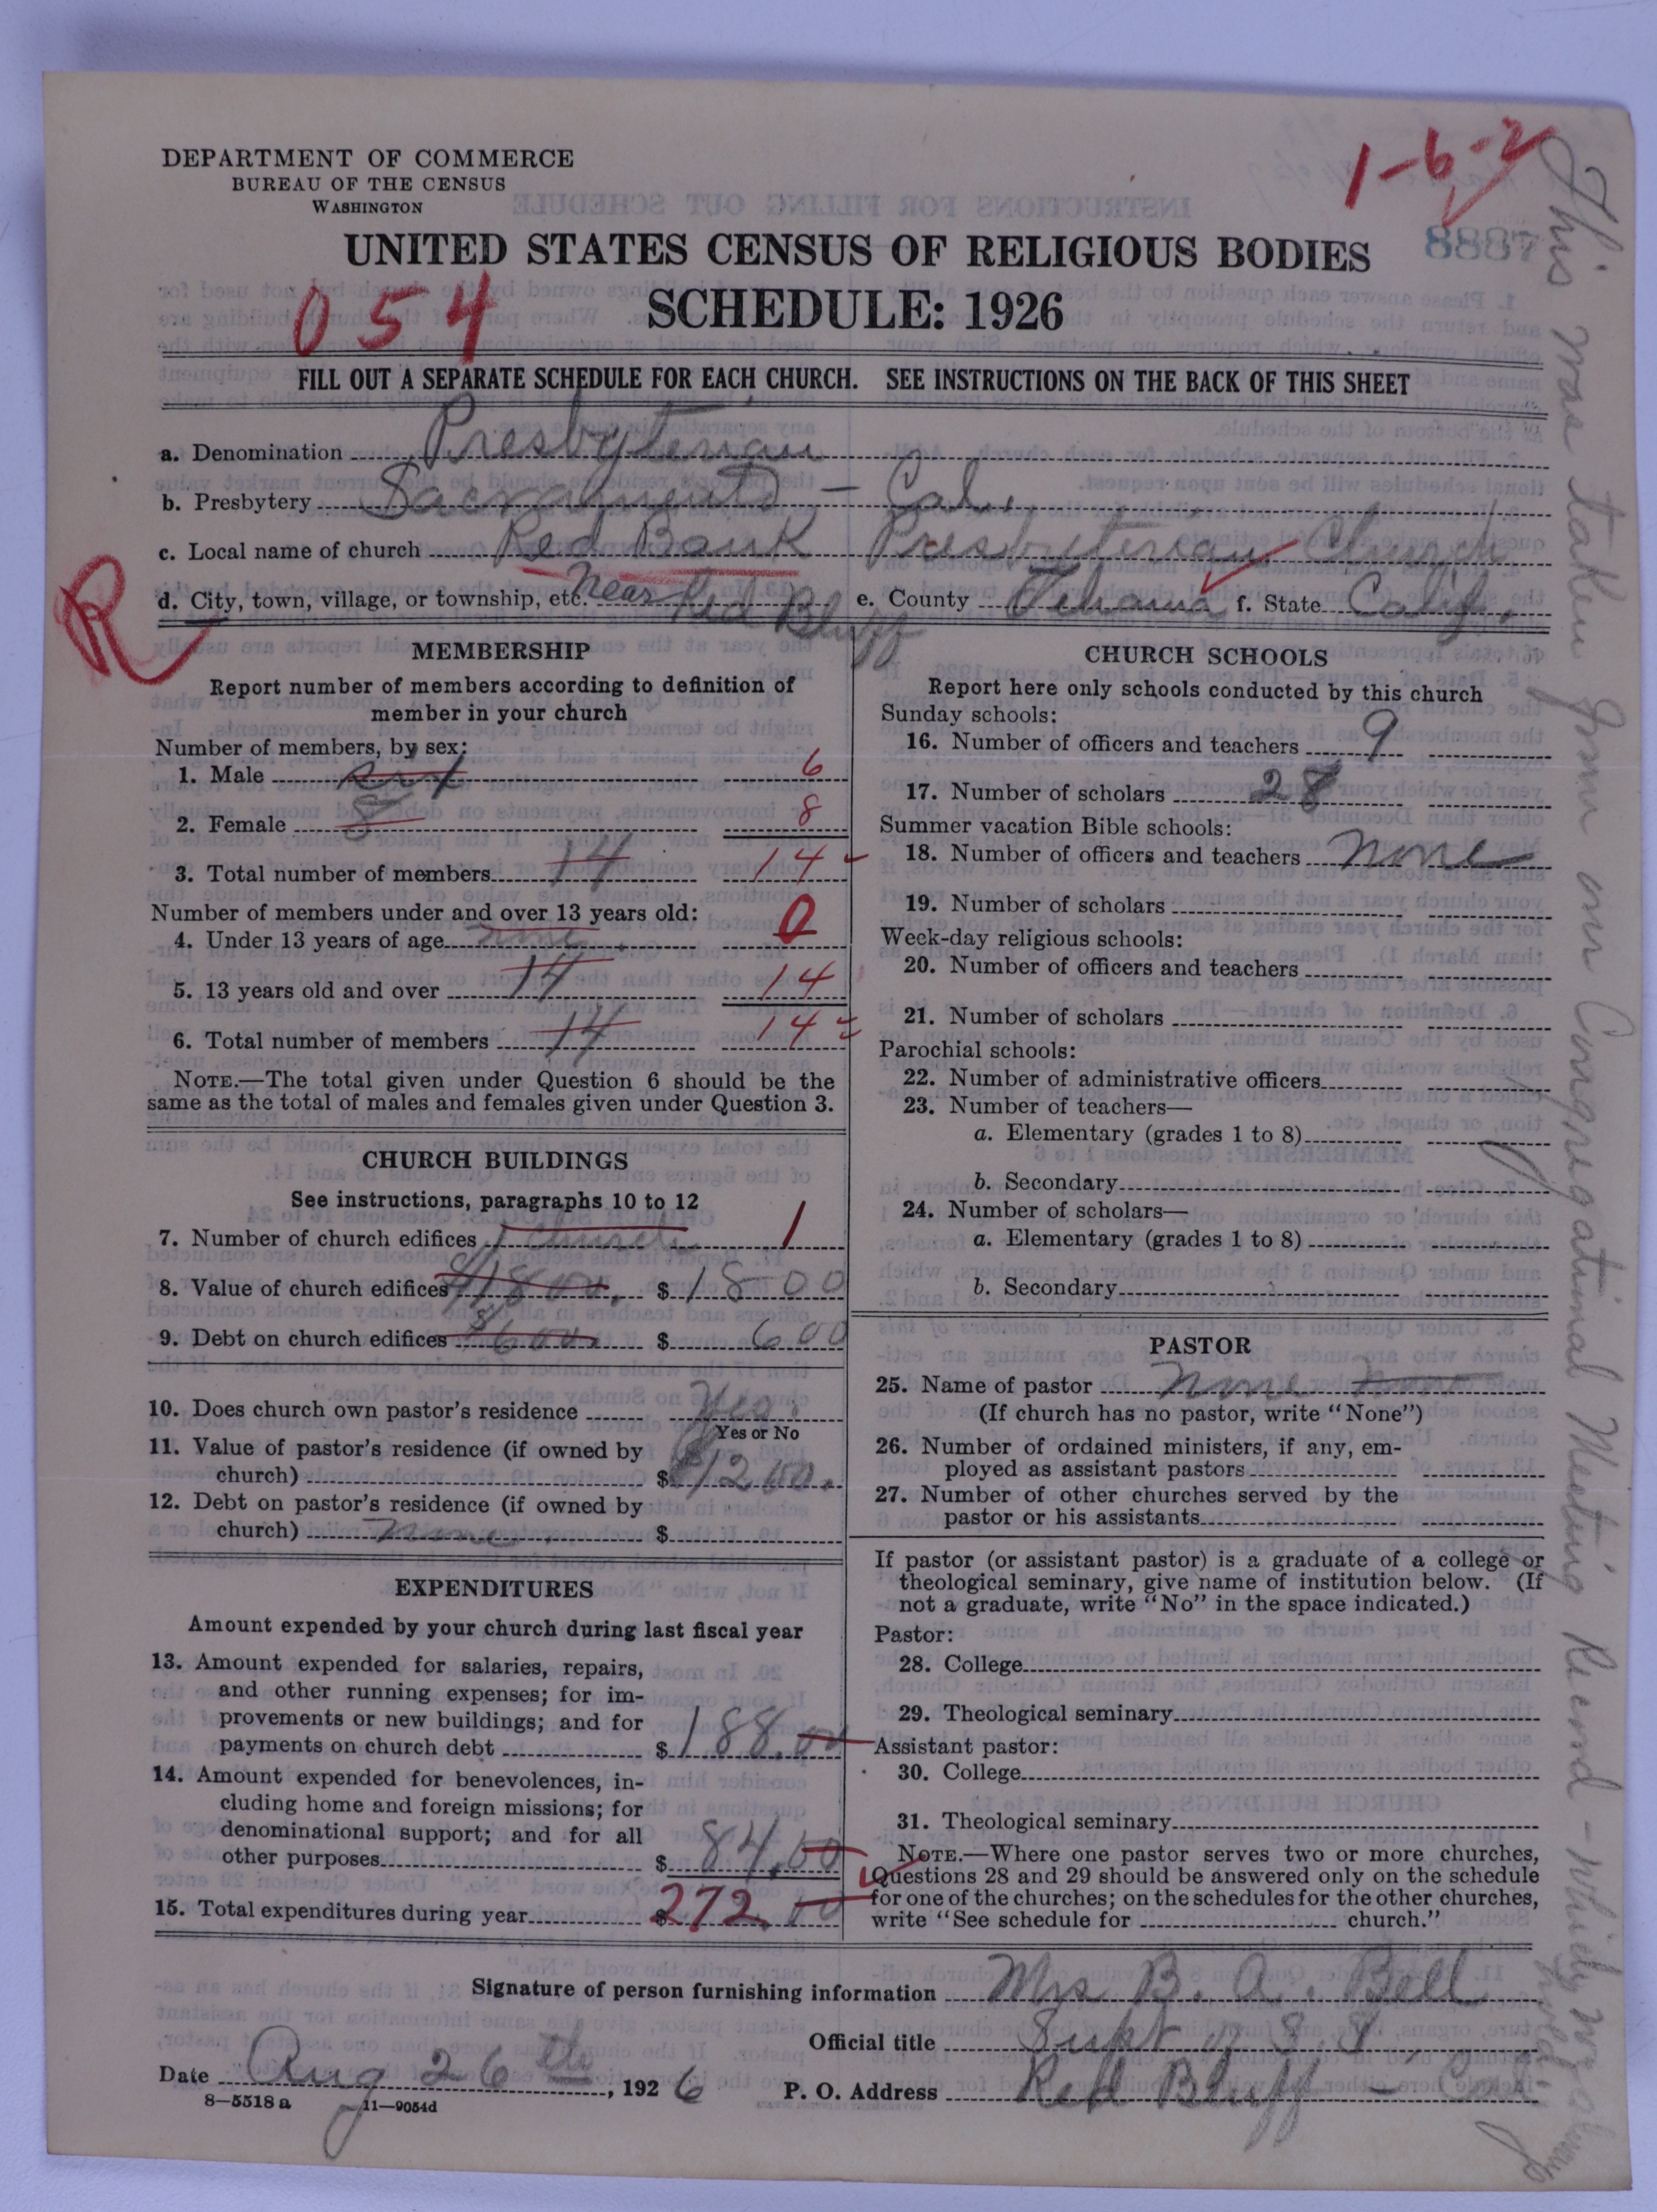 DEPARTMENT OF COMMERCE
BUREAU OF THE CENSUS
WASHINGTON
1-6-2
8887
UNITED STATES CENSUS OF RELIGIOUS BODIES
SCHEDULE: 1926
054
FILL OUT A SEPARATE SCHEDULE FOR EACH CHURCH. SEE INSTRUCTIONS ON THE BACK OF THIS SHEET
a. Denomination Presbyterian
b. Presbytery Sacramento - Cal.
c. Local name of church Red Bank Presbyterian Church
R
d. City, town, village, or township, etc. near Red Bluff e. County Tehama f. State Calif.
MEMBERSHIP
Report number of members according to definition of
member in your church
Number of members, by sex:
1. Male six 6
2. Female 8 8
3. Total number of members 14 14
Number of members under and over 13 years old:
4. Under 13 years of age none 0
5. 13 years old and over 14 14
6. Total number of members 14 14
NOTE.—The total given under Question 6 should be the
same as the total of males and females given under Question 3.
CHURCH BUILDINGS
See instructions, paragraphs 10 to 12
7. Number of church edifices 1 church 1
8. Value of church edifices $1800. $1800
9. Debt on church edifices $600. $600
10. Does church own pastor's residence Yes.
Yes or No
11. Value of pastor's residence (if owned by
church) $ $1200.
12. Debt on pastor's residence (if owned by
church) None $
EXPENDITURES
Amount expended by your church during last fiscal year
13. Amount expended for salaries, repairs,
and other running expenses; for im-
provements or new buildings; and for
payments on church debt $188.00
14. Amount expended for benevolences, in-
cluding home and foreign missions; for
denominational support; and for all
other purposes $84.00
15. Total expenditures during year $272.00
CHURCH SCHOOLS
Report here only schools conducted by this church
Sunday schools:
16. Number of officers and teachers 9
17. Number of scholars 28
Summer vacation Bible schools:
18. Number of officers and teachers None
19. Number of scholars
Week-day religious schools:
20. Number of officers and teachers
21. Number of scholars
Parochial schools:
22. Number of administrative officers
23. Number of teachers—
a. Elementary (grades 1 to 8)
b. Secondary
24. Number of scholars—
a. Elementary (grades 1 to 8)
b. Secondary
PASTOR
25. Name of pastor None
(If church has no pastor, write "None")
26. Number of ordained ministers, if any, em-
ployed as assistant pastors
27. Number of other churches served by the
pastor or his assistants
If pastor (or assistant pastor) is a graduate of a college or
theological seminary, give name of institution below. (If
not a graduate, write "No" in the space indicated.)
Pastor:
28. College
29. Theological seminary
Assistant pastor:
30. College
31. Theological seminary
NOTE.—Where one pastor serves two or more churches,
Questions 28 and 29 should be answered only on the schedule
for one of the churches; on the schedules for the other churches,
write "See schedule for church."
Signature of person furnishing information Mrs B. A. Bell
Official title Supt of S.S.
Date Aug 26th, 1926
P. O. Address Red Bluff - Cal
8—5518 a 11—9054d
This was taken from our Congregational Meeting Record - which we